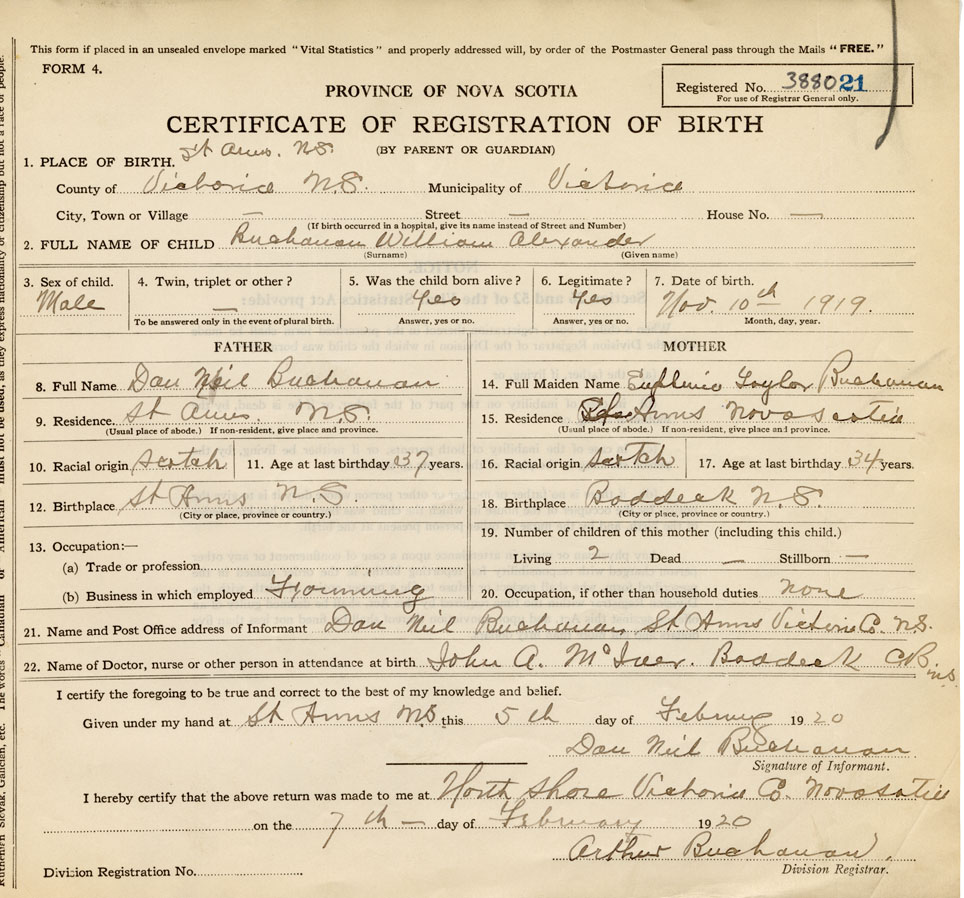 This form if placed in an unsealed envelope marked "Vital Statistics" and properly addressed will, by order of the Postmaster General pass through the Mails "FREE."
FORM 4.
Registered No. 388021
For use of Registrar General only.
PROVINCE OF NOVA SCOTIA
CERTIFICATE OF REGISTRATION OF BIRTH
(BY PARENT OR GUARDIAN)
1. PLACE OF BIRTH. St Anns. N.S.
County of Victoria N.S. Municipality of Victoria
City, Town or Village — Street — House No. —
(If birth occurred in a hospital, give its name instead of Street and Number)
2. FULL NAME OF CHILD Buchanan William Alexander
(Surname) (Given name)
3. Sex of child. Male
4. Twin, triplet or other? —
To be answered only in the event of plural birth.
5. Was the child born alive? Yes
Answer, yes or no.
6. Legitimate? Yes
Answer, yes or no.
7. Date of birth. Nov. 10th 1919.
Month, day, year.
FATHER
8. Full Name Dan Neil Buchanan
9. Residence. St Anns N.S.
(Usual place of abode.) If non-resident, give place and province.
10. Racial origin Scotch 11. Age at last birthday 37 years.
12. Birthplace St Anns N.S.
(City or place, province or country.)
13. Occupation:—
(a) Trade or profession
(b) Business in which employed Farming
MOTHER
14. Full Maiden Name Euphemia Taylor Buchanan
15. Residence Anns Nova Scotia
(Usual place of abode.) If non-resident, give place and province.
16. Racial origin Scotch 17. Age at last birthday 34 years.
18. Birthplace Baddeck N.S.
(City or place, province or country.)
19. Number of children of this mother (including this child.)
Living 2 Dead — Stillborn —
20. Occupation, if other than household duties None
21. Name and Post Office address of Informant Dan Neil Buchanan St Anns Victoria Co. N.S.
22. Name of Doctor, nurse or other person in attendance at birth John A. McIver. Baddeck C.B. N.S.
I certify the foregoing to be true and correct to the best of my knowledge and belief.
Given under my hand at St Anns N.S. this 5th day of 1920
Dan Neil Buchanan
Signature of Informant.
I hereby certify that the above return was made to me at North Shore Victoria Co. Nova Scotia
on the 7th — day of February 1920
Arthur Buchanan.
Division Registrar.
Division Registration No.